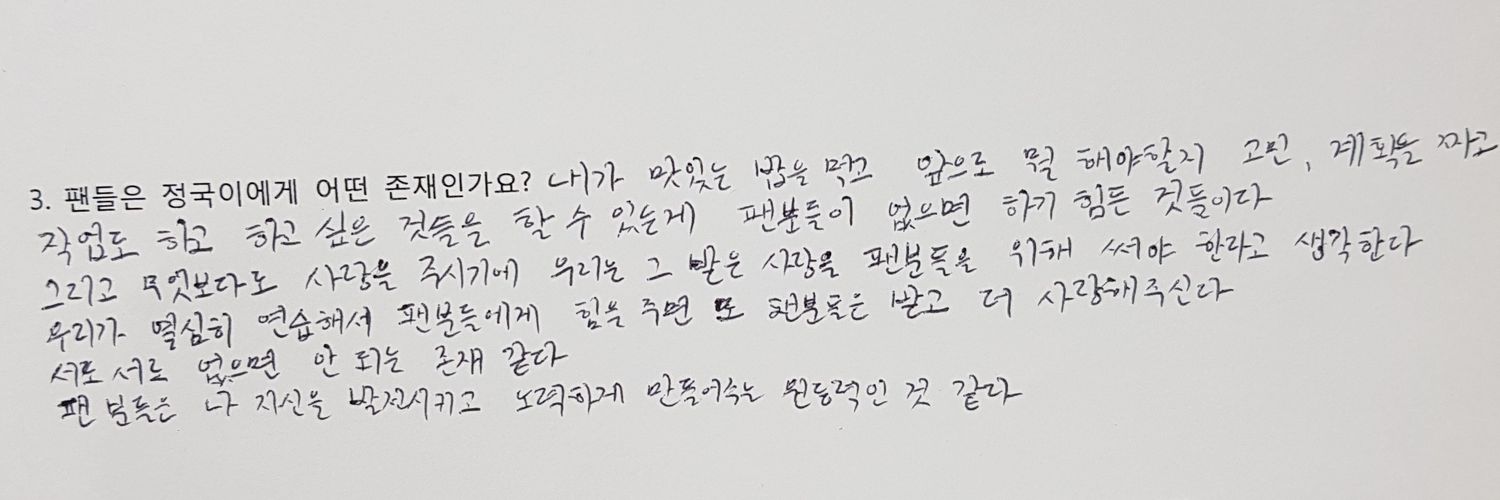 3. 팬들은 정국이에게 어떤 존재인가요? 내가 맛있는 밥을 먹고 앞으로 뭘 해야할지 고민, 계획을 짜고
작업도 하고 하고 싶은 것들을 할 수 있는게 팬분들이 없으면 하기 힘든 것들이다
그리고 무엇보다도 사랑을 주시기에 우리는 그 받은 사랑을 팬분들을 위해 써야 한다고 생각한다
우리가 열심히 연습해서 팬분들에게 힘을 주면 또 팬분들은 받고 더 사랑해주신다
서로 서로 없으면 안 되는 존재 같다
팬 분들은 나 자신을 발전시키고 노력하게 만들어주는 원동력인 것 같다